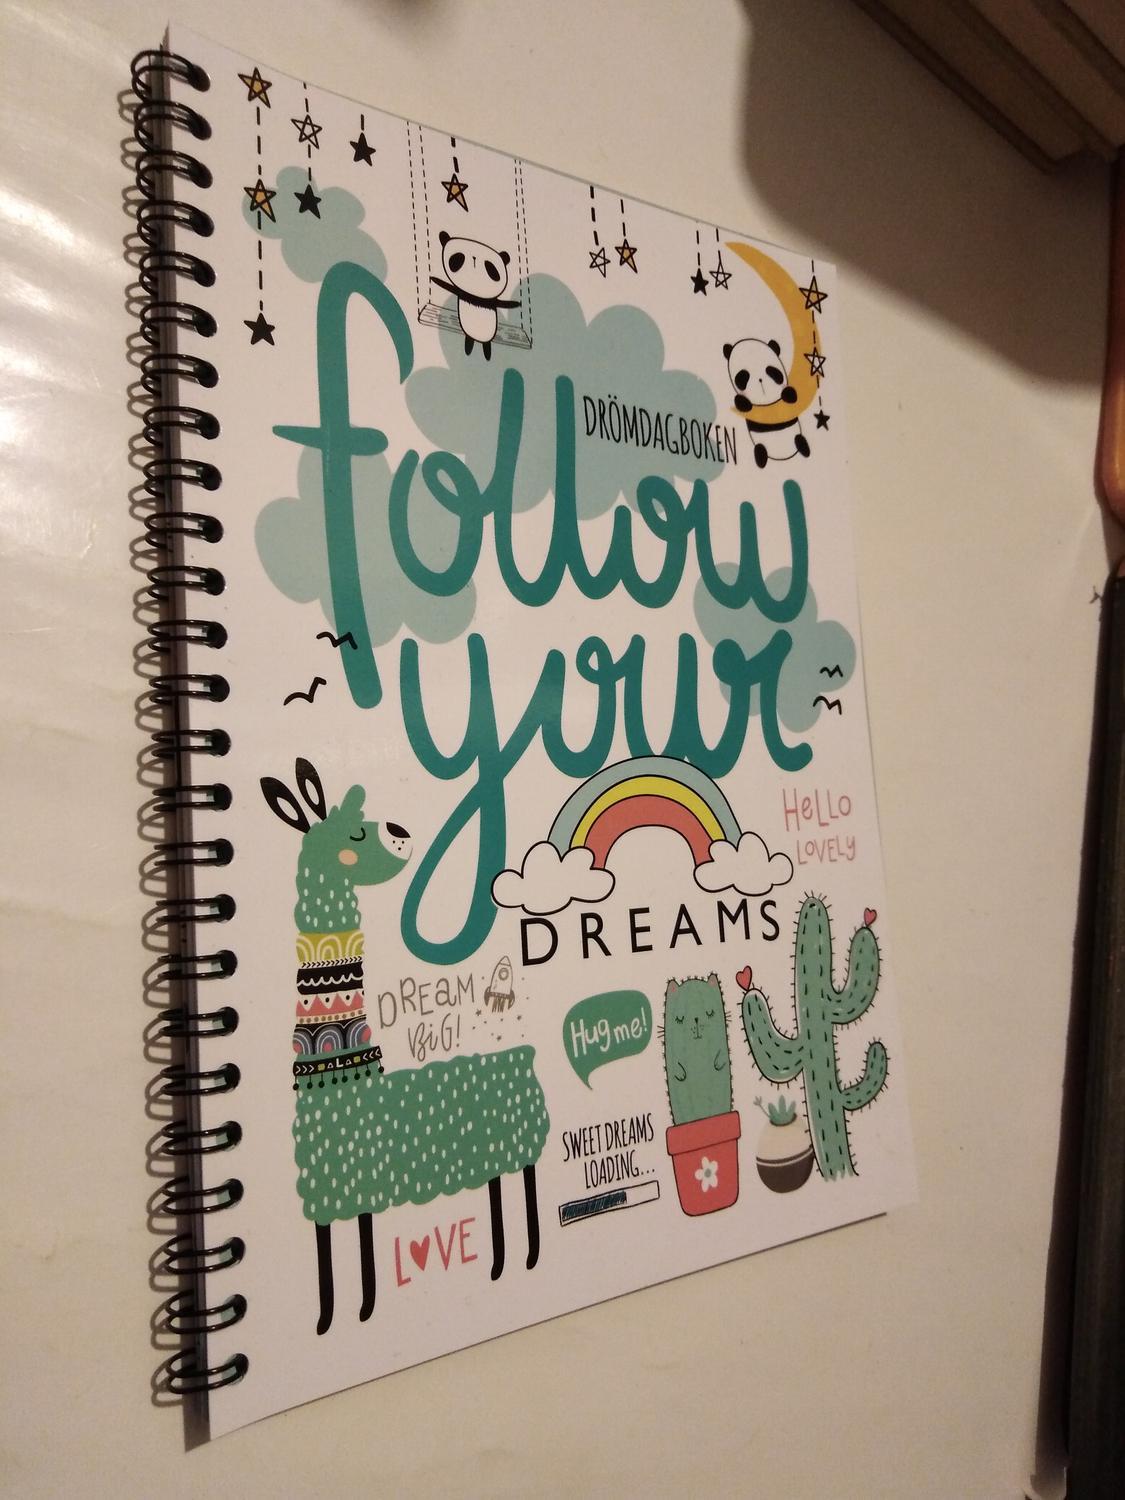 DRÖMDAGBOKEN
follow
your
DREAMS
HeLLO
LOVELY
DReaM
BiG!
Hug me!
SWEET DREAMS
LOADING...
LOVE